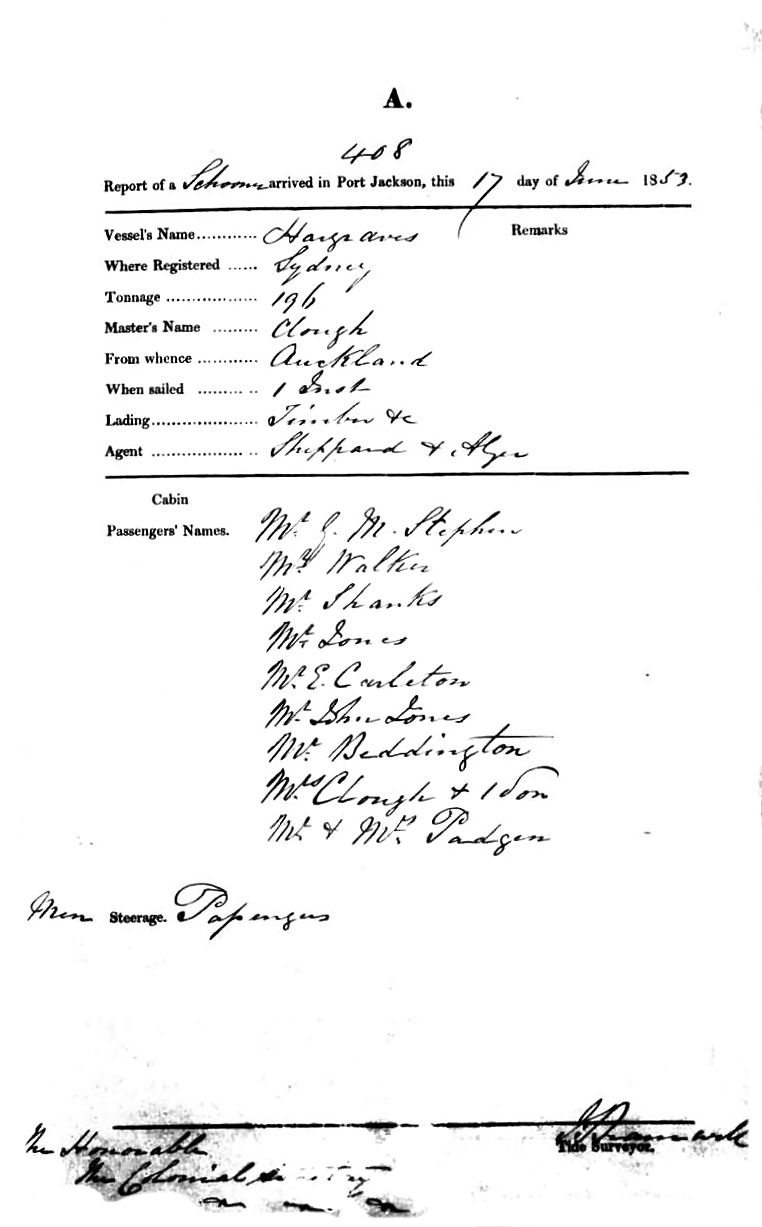 A.
408
Report of a Schooner arrived in Port Jackson, this 17 day of June 1853.
Remarks
Vessel's Name............ Hargraves
Where Registered ...... Sydney
Tonnage .................. 196
Master's Name ......... Clough
From whence ............ Auckland
When sailed ......... .. 1 Inst
Lading..................... Timber &c
Agent .................. .. Sheppard & Alger
Cabin
Passengers' Names. Mr. G. M. Stephen
Mrs Walker
Mr. Shanks
Mr. Jones
Mr. E. Carleton
Mr. John Jones
Mr. Beddington
Mrs Clough & 1 Son
Mr. & Mrs. Padgen
Steerage.
The Honorable
The Colonial Secretary
Tide Surveyor.